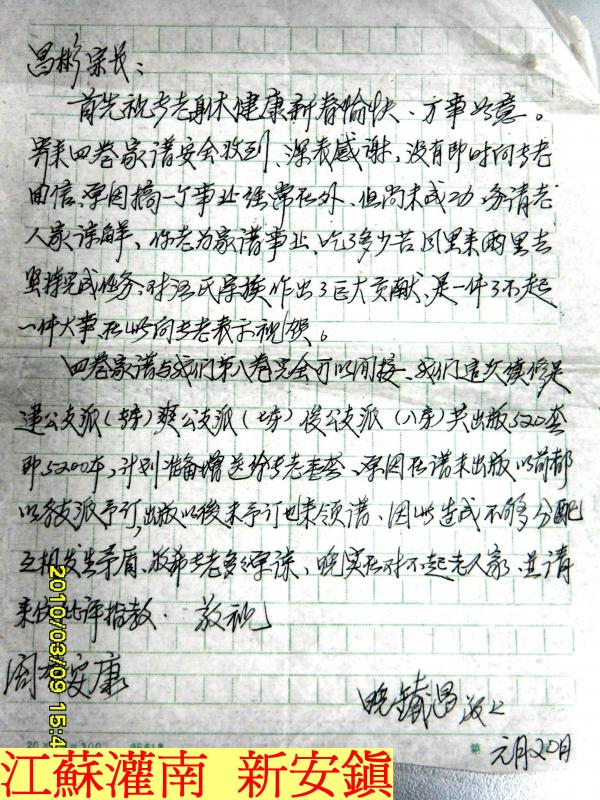 昌彬宗长：
首先祝贵老身体健康新春愉快、万事如意。
寄来四卷家谱安全收到、深表感谢，没有即时向贵老
回信、原因搞一个事业经常在外、但尚未成功、务请老
人家谅解，你老为家谱事业、吃了多少苦风里来雨里去
坚持完成任务、对汪氏宗族作出了巨大贡献、是一件了不起
一件大事、在此向贵老表示祝贺。
四卷家谱与我们第八卷完全可以间接、我们这次续修是
建公支派（房）爽公支派（七房）俊公支派（八房）共出版520套
即5200本，计划准备赠送给贵老壹套、原因在谱未出版以前都
以各支派予订，出版以後未予订也来领谱、因此造成不够分配
互相发生矛盾、敬希贵老多多原谅、晚实在对不起老人家、并请
来信批评指教．敬祝
阖府安康
晚 昌 敬上
元月20日
2010/03/09 15:4
江蘇灌南 新安鎮